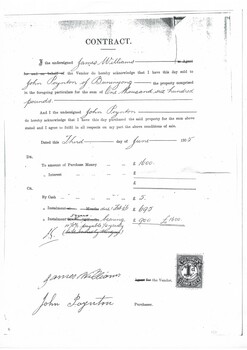 CONTRACT.
I the undersigned James Williams as Agent
for and on behalf of the Vendor do hereby acknowledge that I have this day sold to
John Poynton of Buninyong the property comprised
in the foregoing particulars for the sum of One thousand six hundred
pounds.
And I the undersigned John Poynton
do hereby acknowledge that I have this day purchased the said property for the sum above
stated and I agree to fulfil in all respects on my part the above conditions of sale.
Dated this Third day of June 19
Dr.
To amount of Purchase Money £ 1600
" Interest £
£
Cr.
By Cash £ 5.
" Instalment £ 695
" Instalment bearing £ 900 £1600
James Williams
for the Vendor.
John Poynton
Purchaser.